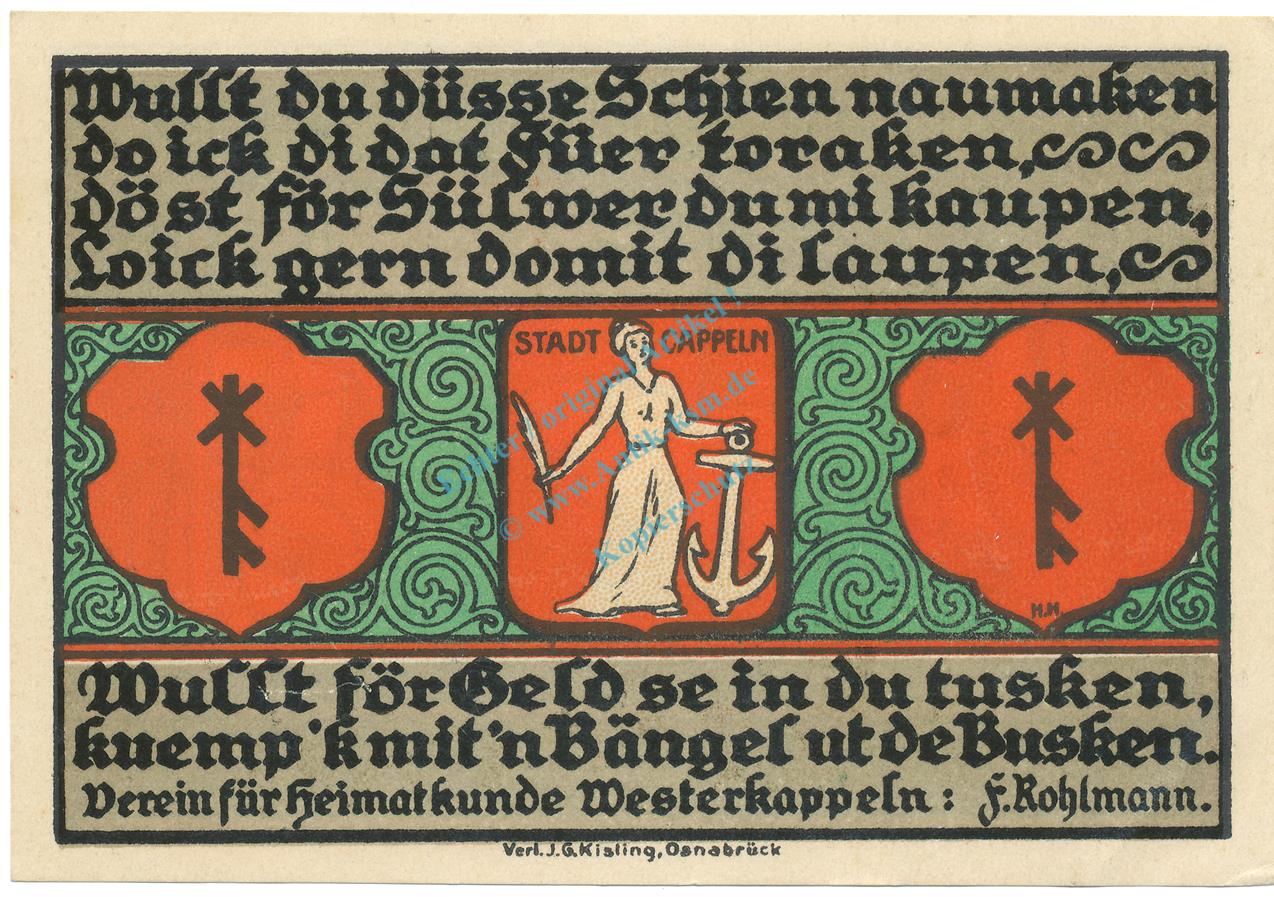 Wullt du düsse Schien naumaken
do ick di dat Füer toraken,
döst för Sülwer du mi kaupen,
Lo ick gern domit di laupen,
STADT CAPPELN
H.H.
Wullt för Geld se in du tusken,
kuemp 'k mit 'n Bängel ut de Busken.
Verein für Heimatkunde Westerkappeln: F. Rohlmann.
Verl. J. G. Kisling, Osnabrück
original Artikel !
© www.Antik-kom.de
Kopierschutz